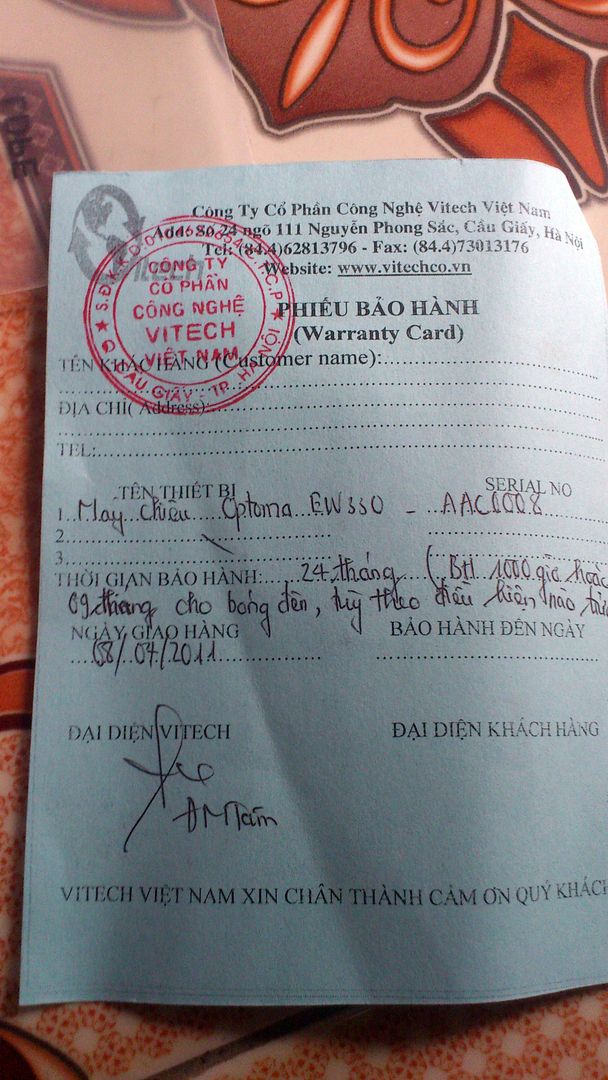 Công Ty Cổ Phần Công Nghệ Vitech Việt Nam
Add: Số 24 ngõ 111 Nguyễn Phong Sắc, Cầu Giấy, Hà Nội
Tel: (84.4)62813796 - Fax: (84.4)73013176
Website: www.vitechco.vn
CÔNG TY
CỔ PHẦN
CÔNG NGHỆ
VITECH
VIỆT NAM
Q. CẦU GIẤY - TP. HÀ NỘI
PHIẾU BẢO HÀNH
(Warranty Card)
TÊN KHÁCH HÀNG (Customer name):
ĐỊA CHỈ( Address):
TEL:
TÊN THIẾT BỊ SERIAL NO
1 Máy chiếu Optoma EW330 - AAC0008
2
3
THỜI GIAN BẢO HÀNH: 24 tháng ( BH 1000 giờ hoặc
09 tháng cho bóng đèn, tùy theo điều kiện nào
NGÀY GIAO HÀNG BẢO HÀNH ĐẾN NGÀY
08/04/2011
ĐẠI DIỆN VITECH ĐẠI DIỆN KHÁCH HÀNG
ĐM Tám
VITECH VIỆT NAM XIN CHÂN THÀNH CẢM ƠN QUÝ KHÁCH
CDbE